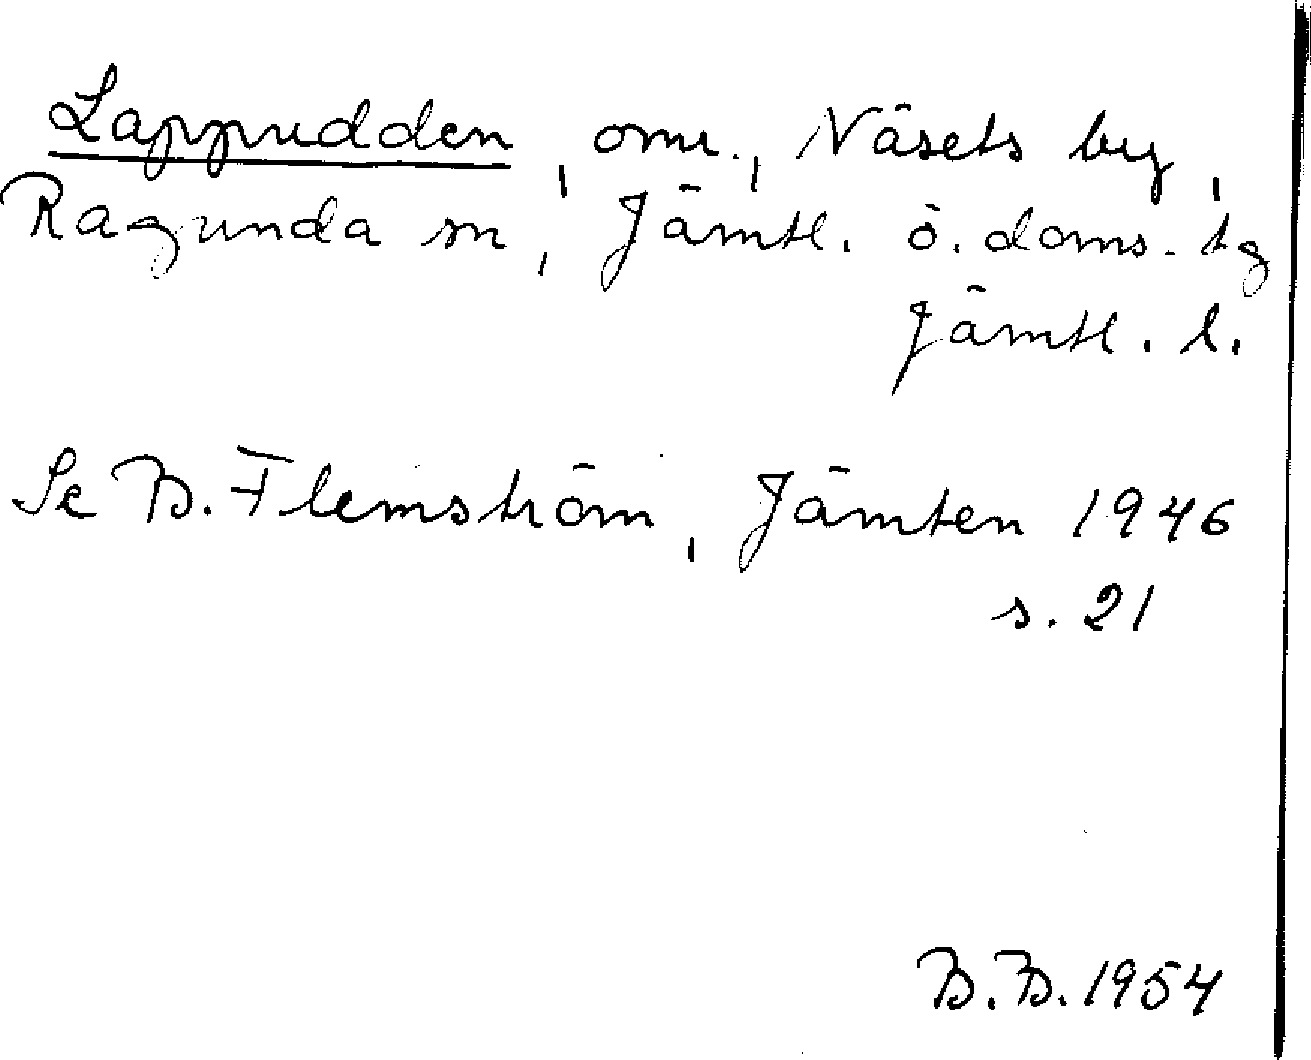 Lappudden, omr., Näsets by,
Ragunda sn, Jämtl. ö. doms. tg
Jämtl. l.
Se B. Flemström, Jämten 1946
s. 21
B.B. 1954